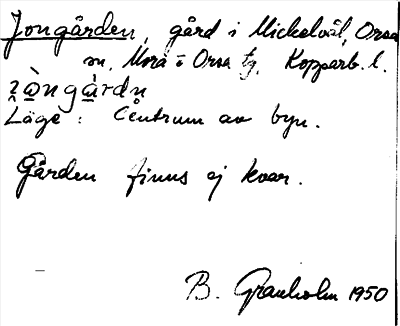 Jongården, gård i Mickelvål, Orsa
sn, Mora o Orsa tg, Kopparb. l.
Läge: Centrum av byn.
Gården finns ej kvar.
B. Granholm 1950